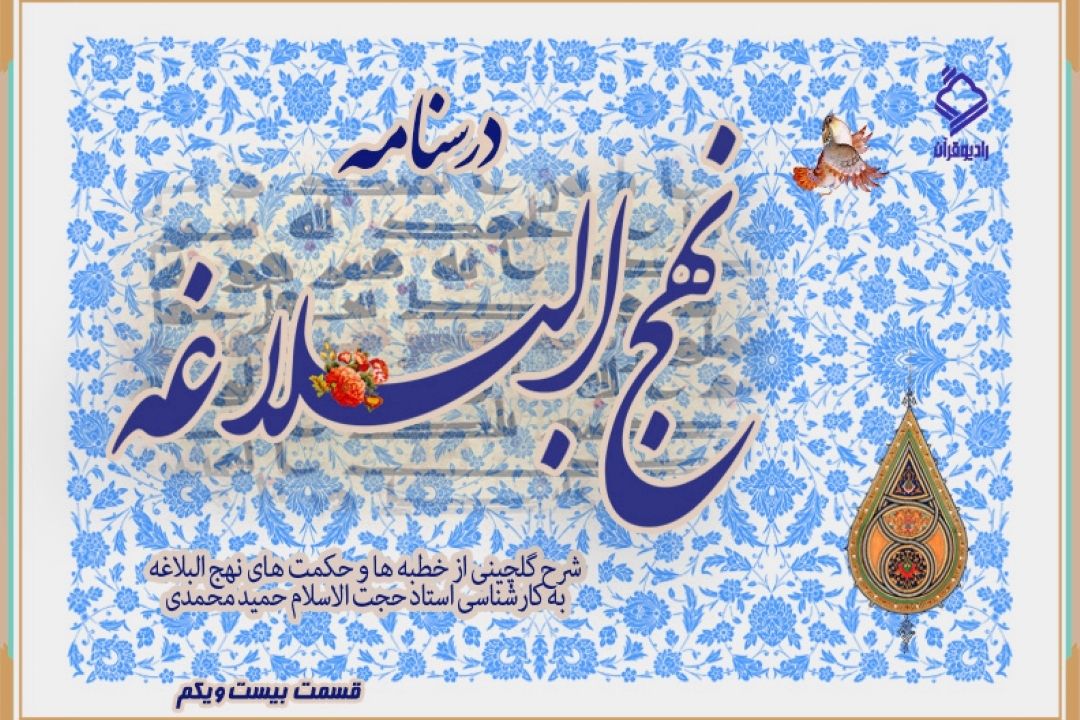 رادیو قرآن
درسنامه
نهج البلاغه
شرح گلچینی از خطبه ها و حکمت های نهج البلاغه
به کارشناسی استاد حجت الاسلام حمید محمدی
قسمت بیست و یکم